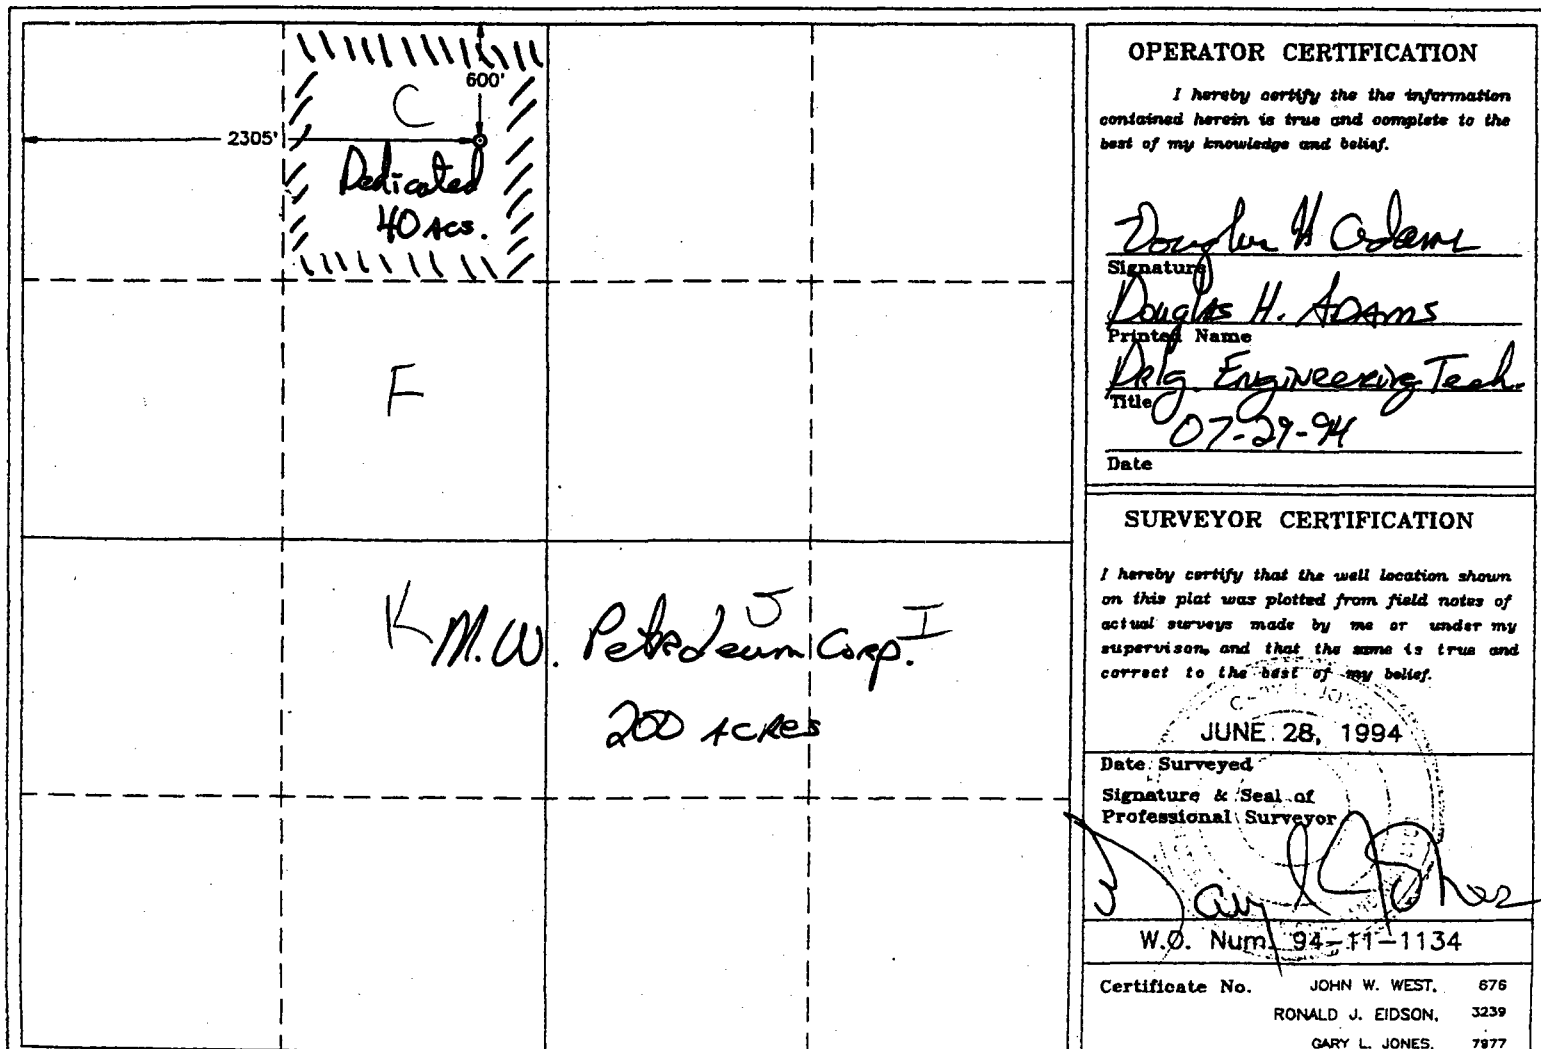 600'
C
2305'
Dedicated
40 Acs.
F
K
J
I
M.W. Petroleum Corp.
200 Acres
OPERATOR CERTIFICATION
I hereby certify the the information
contained herein is true and complete to the
best of my knowledge and belief.
Douglas H Adams
Signature
Douglas H. Adams
Printed Name
Drlg. Engineering Tech.
Title
07-29-94
Date
SURVEYOR CERTIFICATION
I hereby certify that the well location shown
on this plat was plotted from field notes of
actual surveys made by me or under my
supervison, and that the same is true and
correct to the best of my belief.
JUNE 28, 1994
Date Surveyed
Signature & Seal of
Professional Surveyor
Gary L Jones
W.O. Num. 94-11-1134
Certificate No. JOHN W. WEST, 676
RONALD J. EIDSON, 3239
GARY L. JONES, 7977